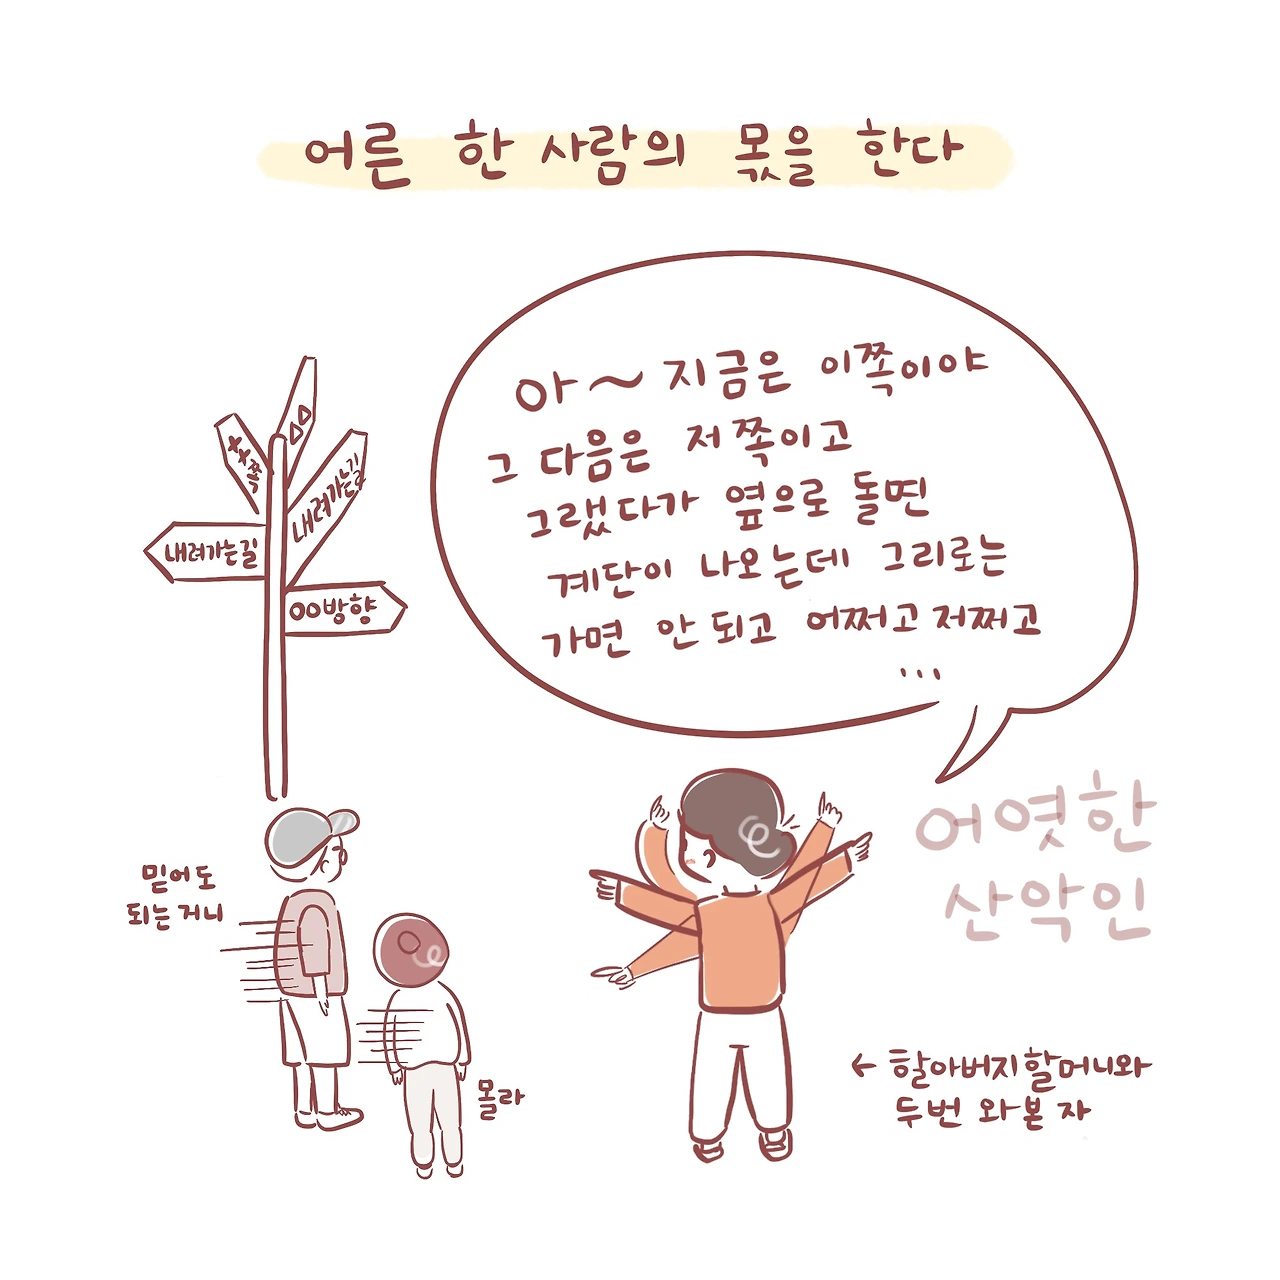 어른 한 사람의 몫을 한다
아~ 지금은 이쪽이야
그 다음은 저쪽이고
그랬다가 옆으로 돌면
계단이 나오는데 그리로는
가면 안 되고 어쩌고 저쩌고
...
△△
××쪽
내려가는길
내려가는길
○○방향
어엿한
산악인
믿어도
되는거니
몰라
← 할아버지할머니와
두번 와본 자